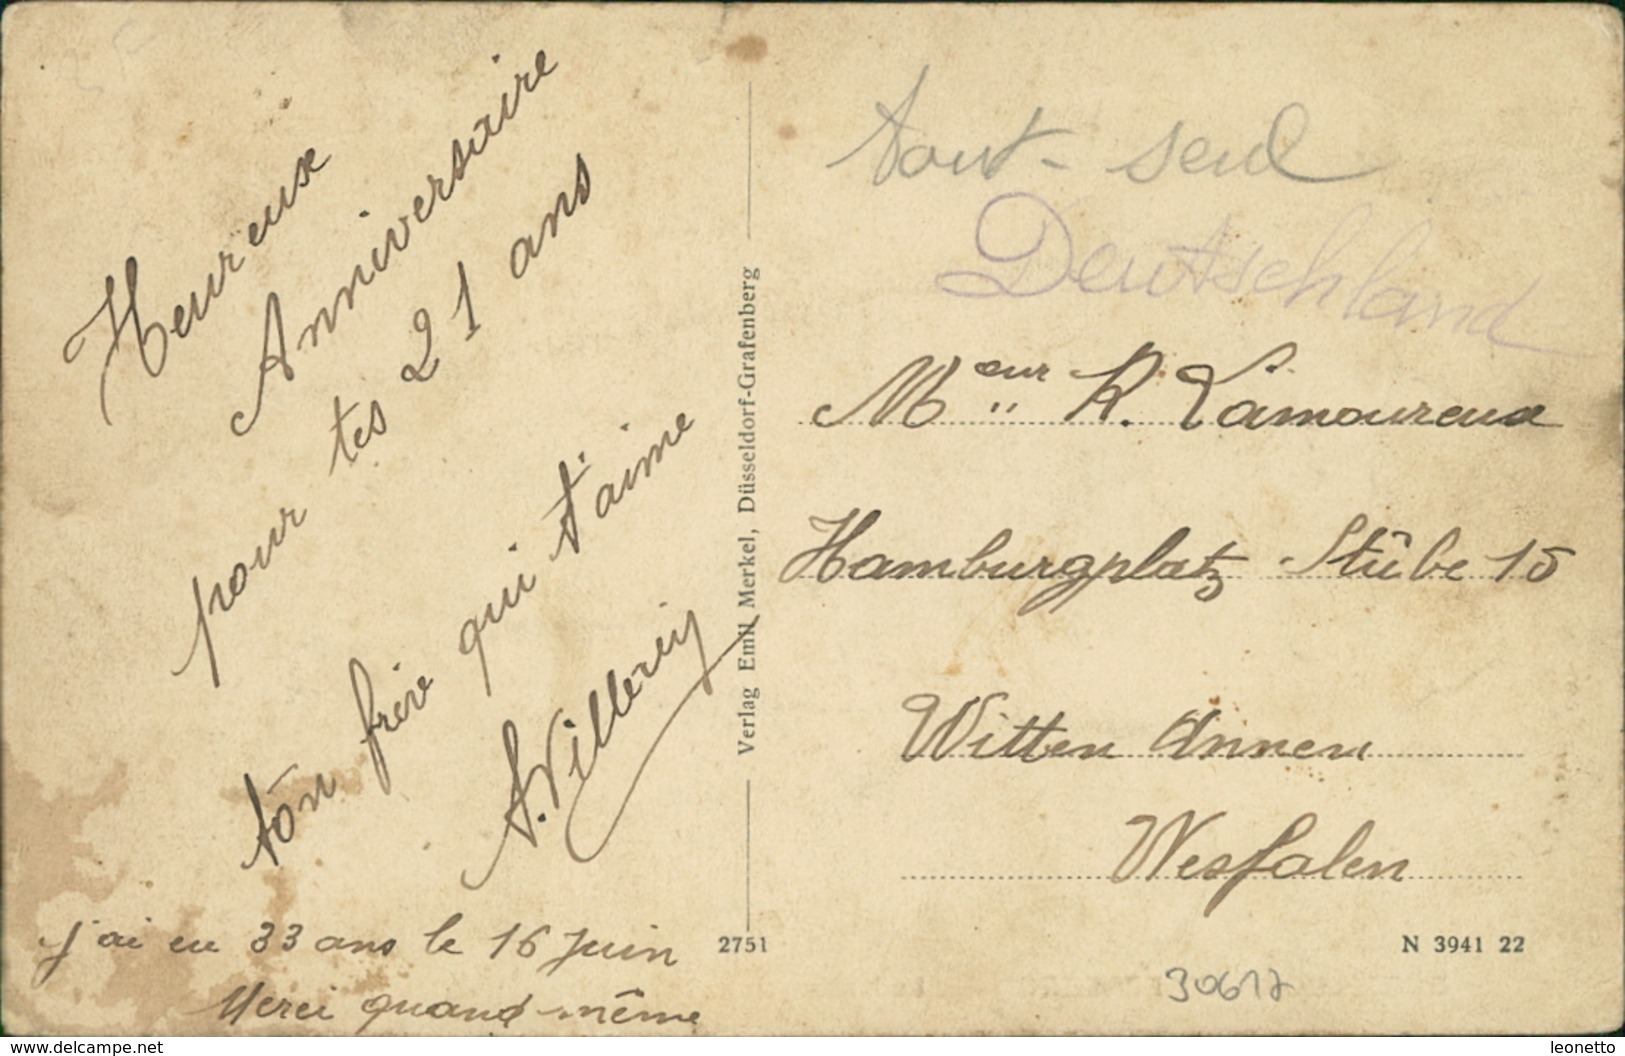 Heureux
Anniversaire
pour tes 21 ans
ton frère qui t'aime
A. Villeriy
J'ai eu 33 ans le 16 Juin
Merci quand même
Verlag Emil Merkel, Düsseldorf-Grafenberg
2751
tout-seul
Deutschland
Meur R. Lamoureux
Hamburgplatz Stübe 15
Witten Annen
Wesfalen
N 3941 22
30617
www.delcampe.net
leonetto